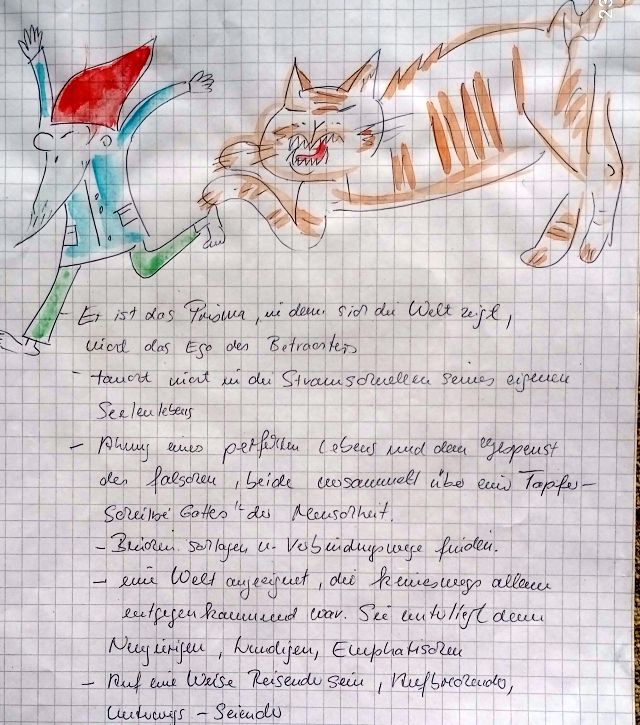 - Er ist das Prisma, in dem sich die Welt zeigt,
nicht das Ego des Betrachters
- taucht nicht in die Stromschnellen seines eigenen
Seelenlebens
- Ahnung eines perfekten Lebens und dem "Gespenst
des falschen, beide versammelt über eine Töpfer-
Scheibe Gottes" der Menschheit.
- Brücken schlagen u. Verbindungswege finden.
- eine Welt angeeignet, die keineswegs allem
entgegenkommend war. Sie unterliegt dem
Neugierigen, Kundigen, Emphatischen
- Auf eine Weise Reisende sein, Aufbrechende,
Unterwegs - Seiende
23